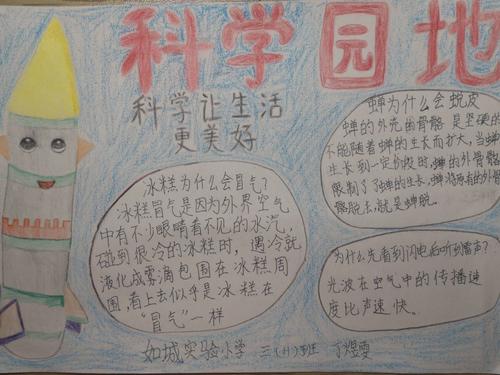 科学园地
科学让生活
更美好
冰糕为什么会冒气?
冰糕冒气是因为外界空气
中有不少眼睛看不见的水汽,
碰到很冷的冰糕时,遇冷就
液化成雾滴包围在冰糕周
围,看上去似乎是冰糕在
“冒气”一样
蝉为什么会蜕皮
蝉的外壳(外骨骼)是坚硬的
不能随着蝉的生长而扩大,当蝉
生长到一定阶段时,蝉的外骨骼
限制了蝉的生长,蝉将原有的外骨
骼脱去,就是蝉蜕。
为什么先看到闪电后听到雷声?
光波在空气中的传播速
度比声速快。
如城实验小学 三(11)班 丁煜雯